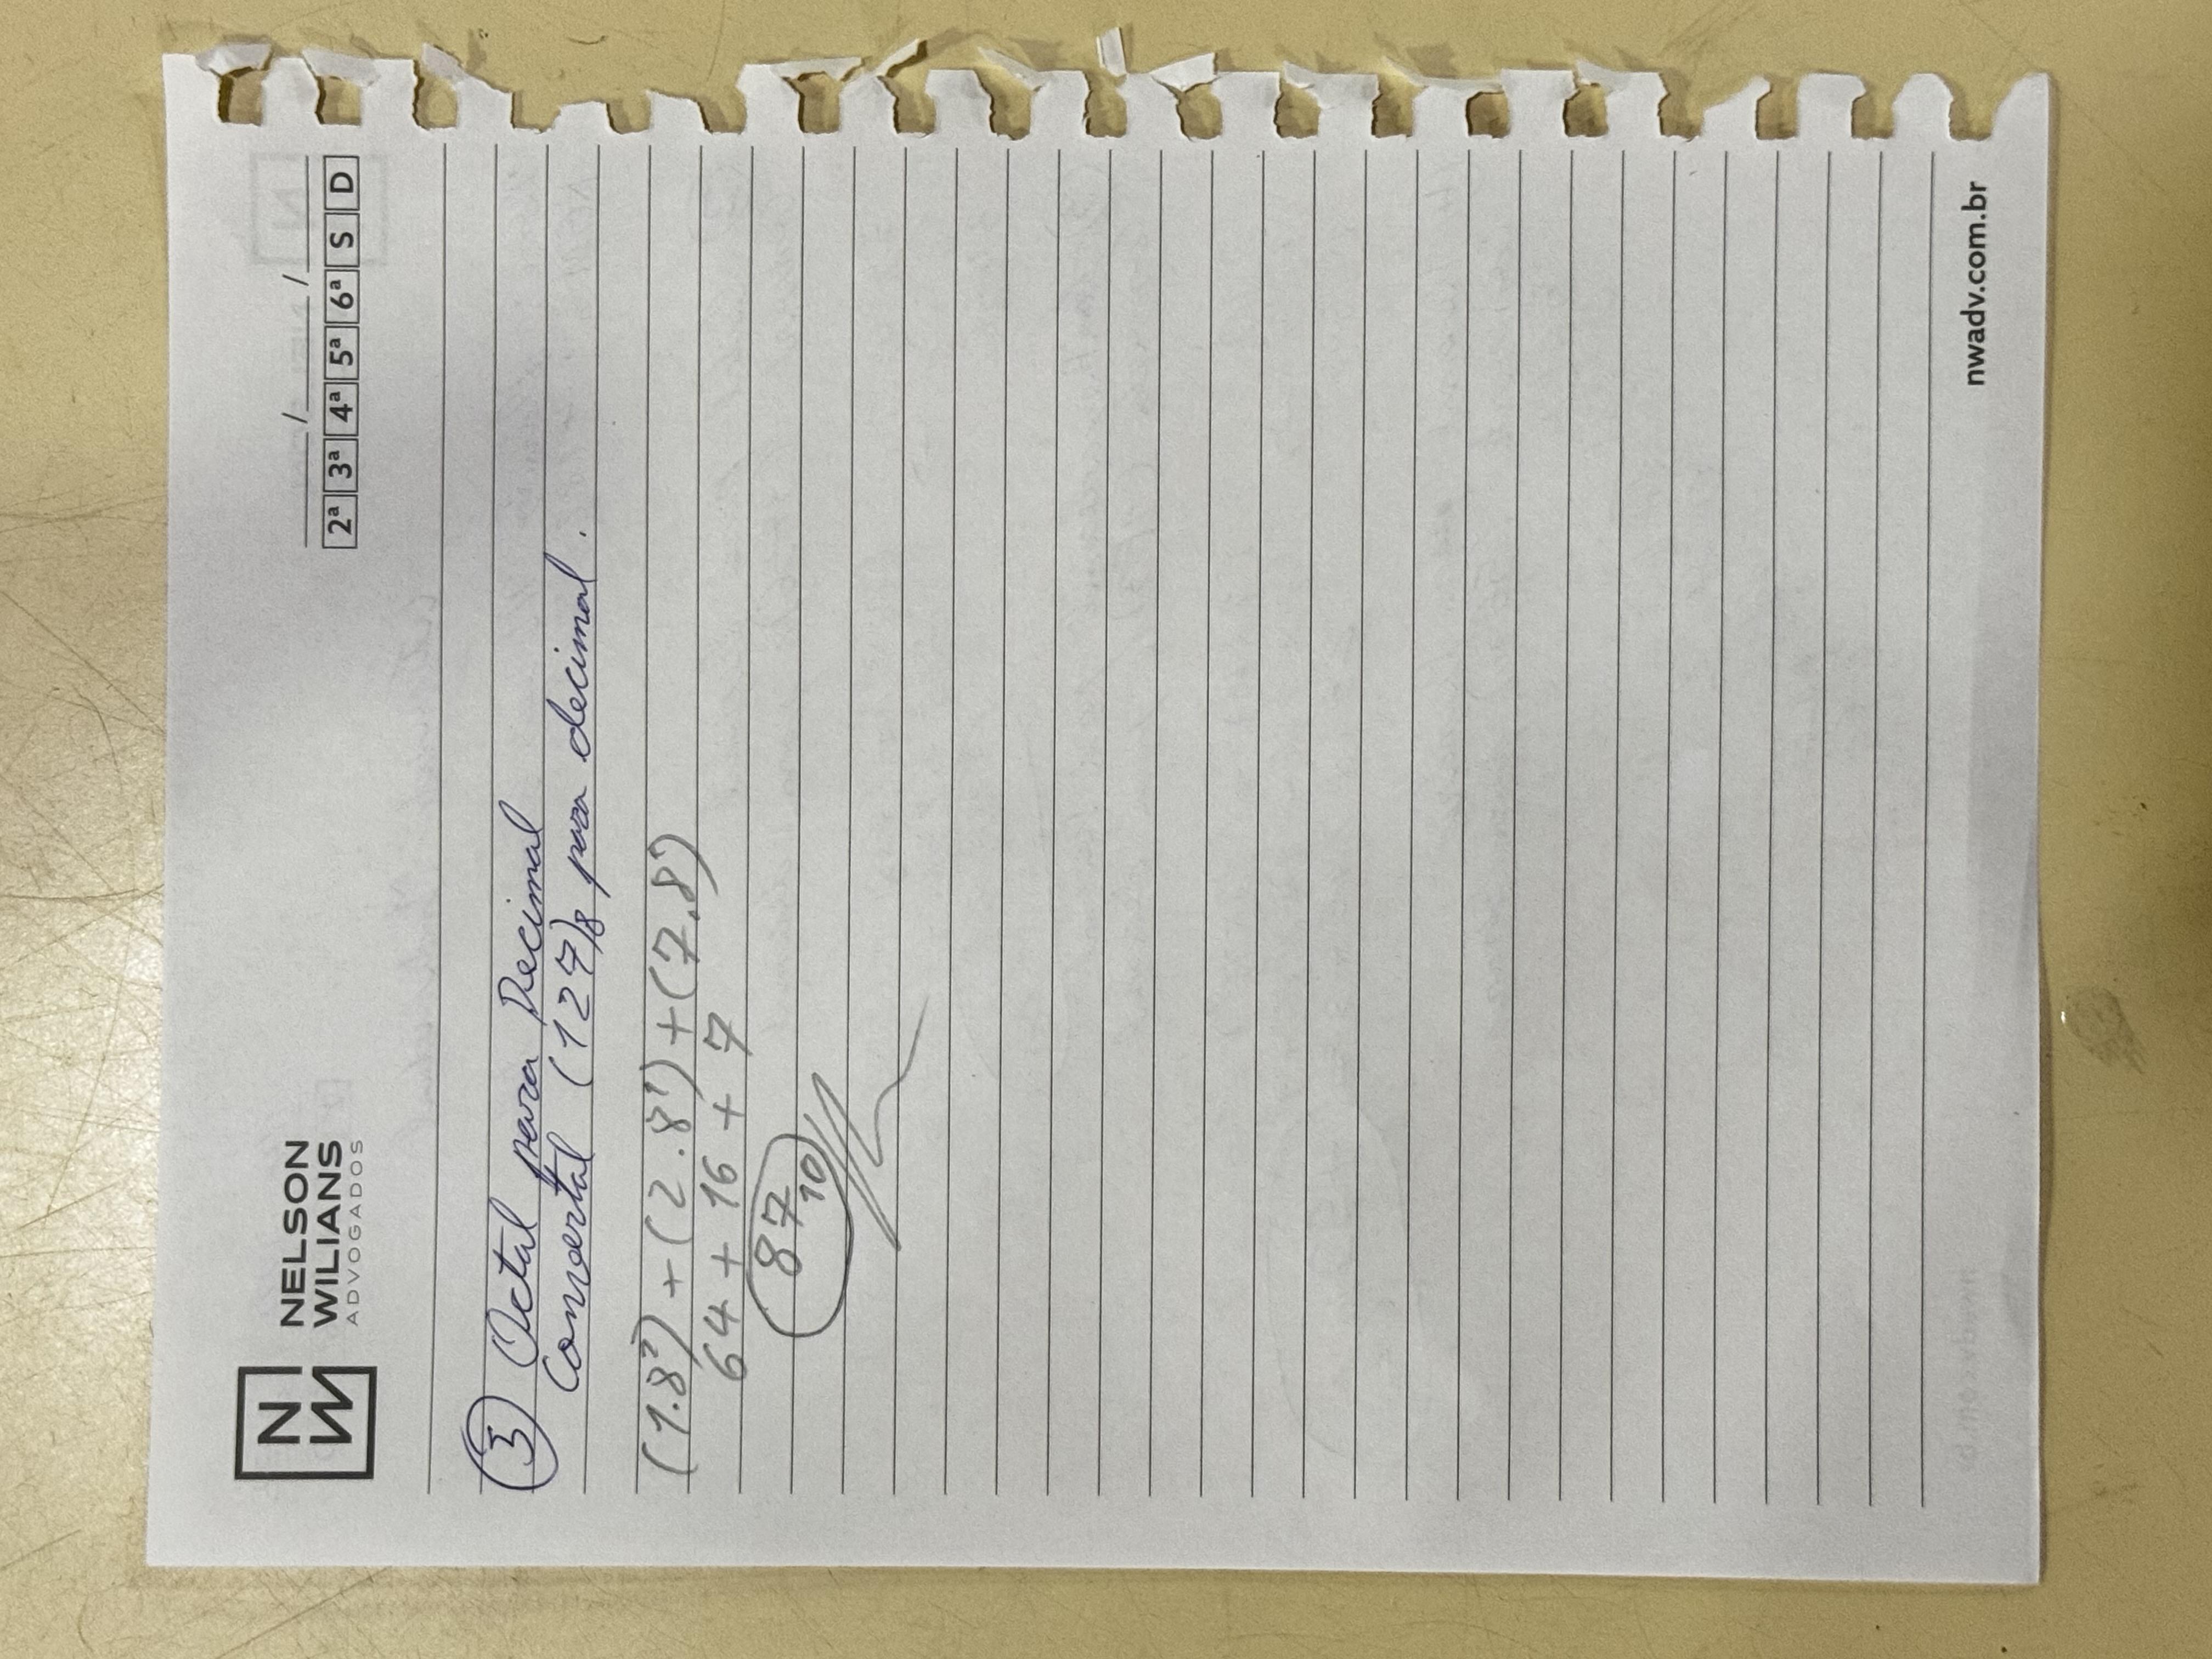 NW
NELSON
WILIANS
ADVOGADOS
____/____/____
2ª 3ª 4ª 5ª 6ª S D
5 Octal para Decimal
Convertal (127)₈ para decimal.
(1.8²) + (2.8¹) + (7.8⁰)
64 + 16 + 7
87₁₀
nwadv.com.br